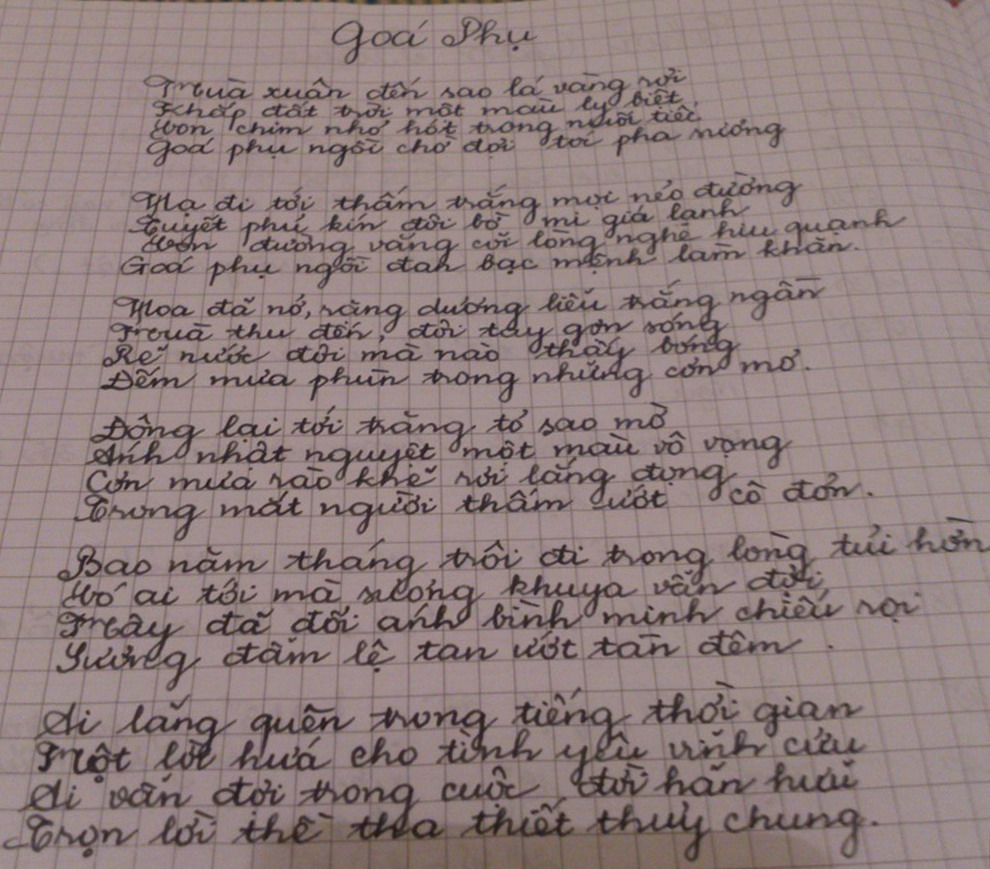 Goá Phụ
Mùa xuân đến sao lá vàng rơi
Khắp đất trời một màu ly biệt
Con chim nhỏ hót trong nuối tiếc
Goá phụ ngồi chờ đợi tới pha sương
Hạ đi tới thấm trắng mọi nẻo đường
Tuyết phủ kín đôi bờ mi giá lạnh
Con đường vắng cõi lòng nghe hiu quạnh
Goá phụ ngồi đan bạc mệnh làm khăn.
Hoa đã nở, rặng dương liễu trắng ngần
Mùa thu đến, đôi tay gợn sóng
Rẽ nước đời mà nào thấy bóng
Đếm mưa phùn trong những cơn mơ.
Đông lại tới trăng tỏ sao mờ
Ánh nhật nguyệt một màu vô vọng
Cơn mưa rào khẽ rơi lắng đọng
Trong mắt người thấm ướt cô đơn.
Bao năm tháng trôi đi trong lòng tủi hờn
Có ai tới mà sương khuya vẫn đợi
Mây đã đổi ánh bình minh chiếu rọi
Sương đẫm lệ tan ướt tàn đêm.
Ai lãng quên trong tiếng thời gian
Một lời hứa cho tình yêu vĩnh cửu
Ai vẫn đợi trong cuộc đời hẩm hưu
Trọn lời thề tha thiết thuỷ chung.